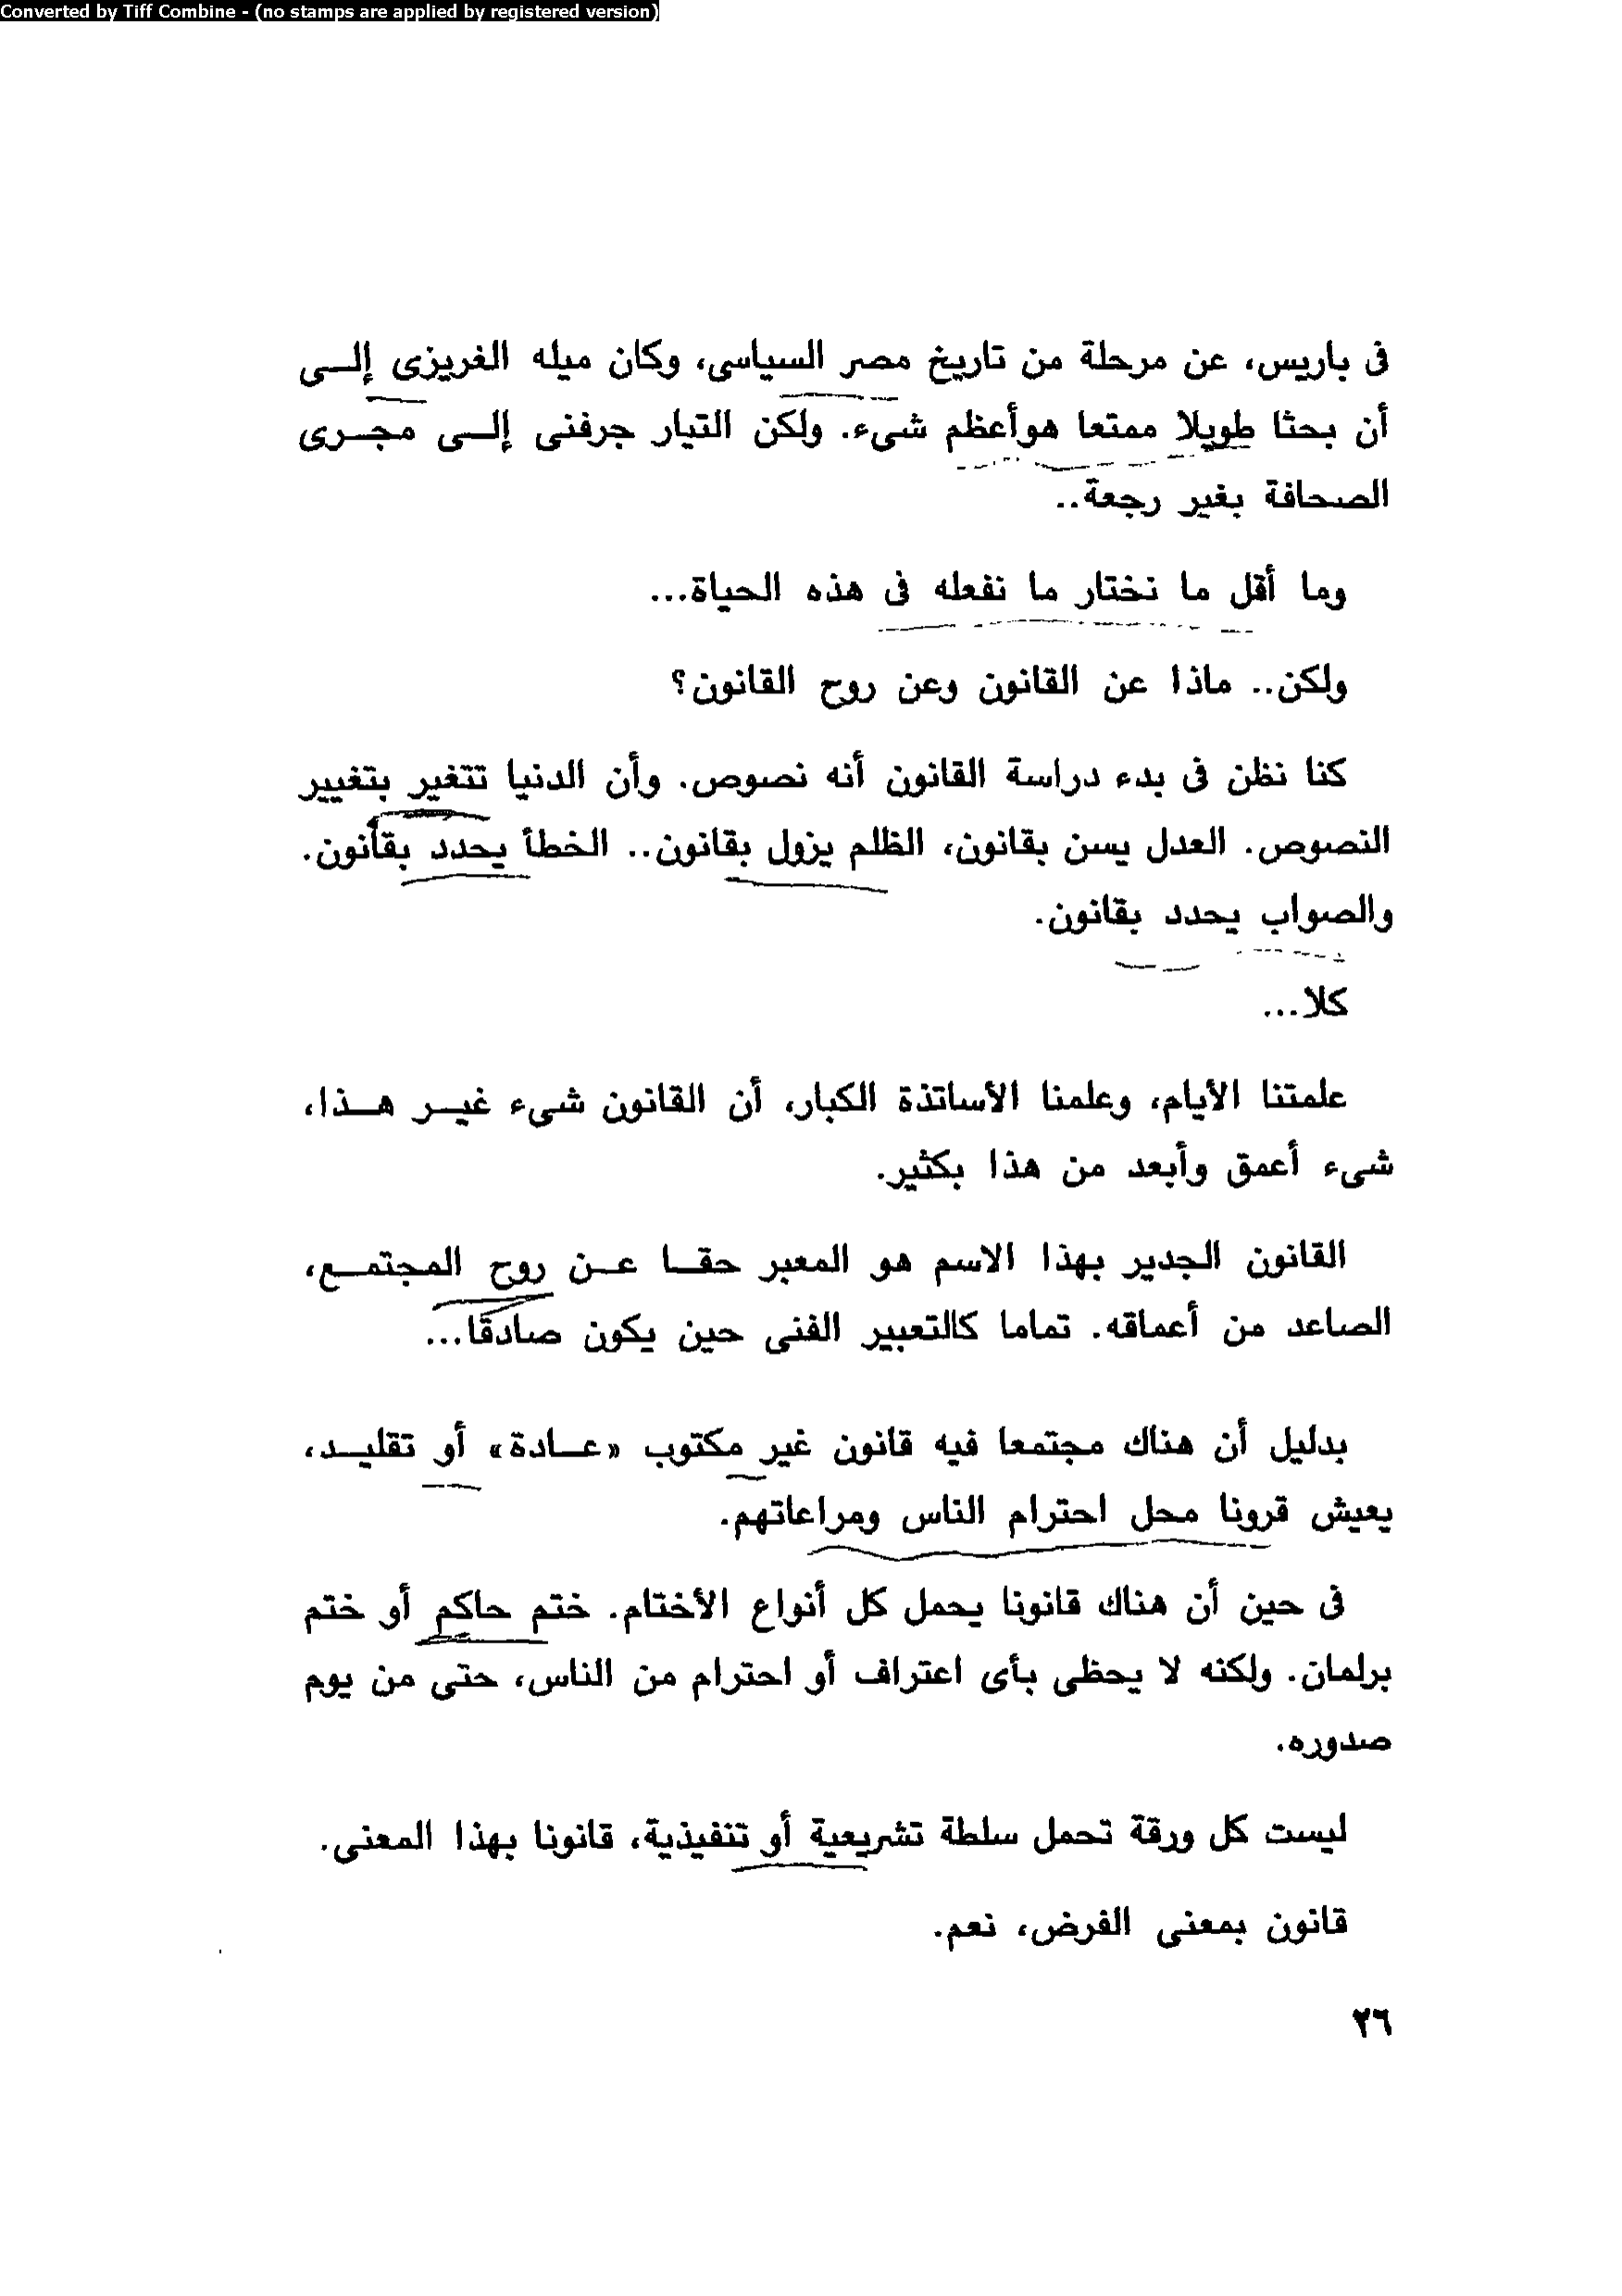 Converted by Tiff Combine - (no stamps are applied by registered version)
فى باريس، عن مرحلة من تاريخ مصر السياسى، وكان ميله الغريزى إلى
أن بحثا طويلا ممتعا هوأعظم شىء. ولكن التيار جرفنى إلى مجرى
الصحافة بغير رجعة..
وما أقل ما نختار ما نفعله فى هذه الحياة...
ولكن.. ماذا عن القانون وعن روح القانون؟
كنا نظن فى بدء دراسة القانون أنه نصوص. وأن الدنيا تتغير بتغيير
النصوص. العدل يسن بقانون، الظلم يزول بقانون.. الخطأ يحدد بقانون.
والصواب يحدد بقانون.
كلا...
علمتنا الأيام، وعلمنا الأساتذة الكبار، أن القانون شىء غير هذا،
شىء أعمق وأبعد من هذا بكثير.
القانون الجدير بهذا الاسم هو المعبر حقا عن روح المجتمع،
الصاعد من أعماقه. تماما كالتعبير الفنى حين يكون صادقًا...
بدليل أن هناك مجتمعا فيه قانون غير مكتوب «عادة» أو تقليد،
يعيش قرونا محل احترام الناس ومراعاتهم.
فى حين أن هناك قانونا يحمل كل أنواع الأختام. ختم حاكم أو ختم
برلمان. ولكنه لا يحظى بأى اعتراف أو احترام من الناس، حتى من يوم
صدوره.
ليست كل ورقة تحمل سلطة تشريعية أو تنفيذية، قانونا بهذا المعنى.
قانون بمعنى الفرض، نعم.
٢٦